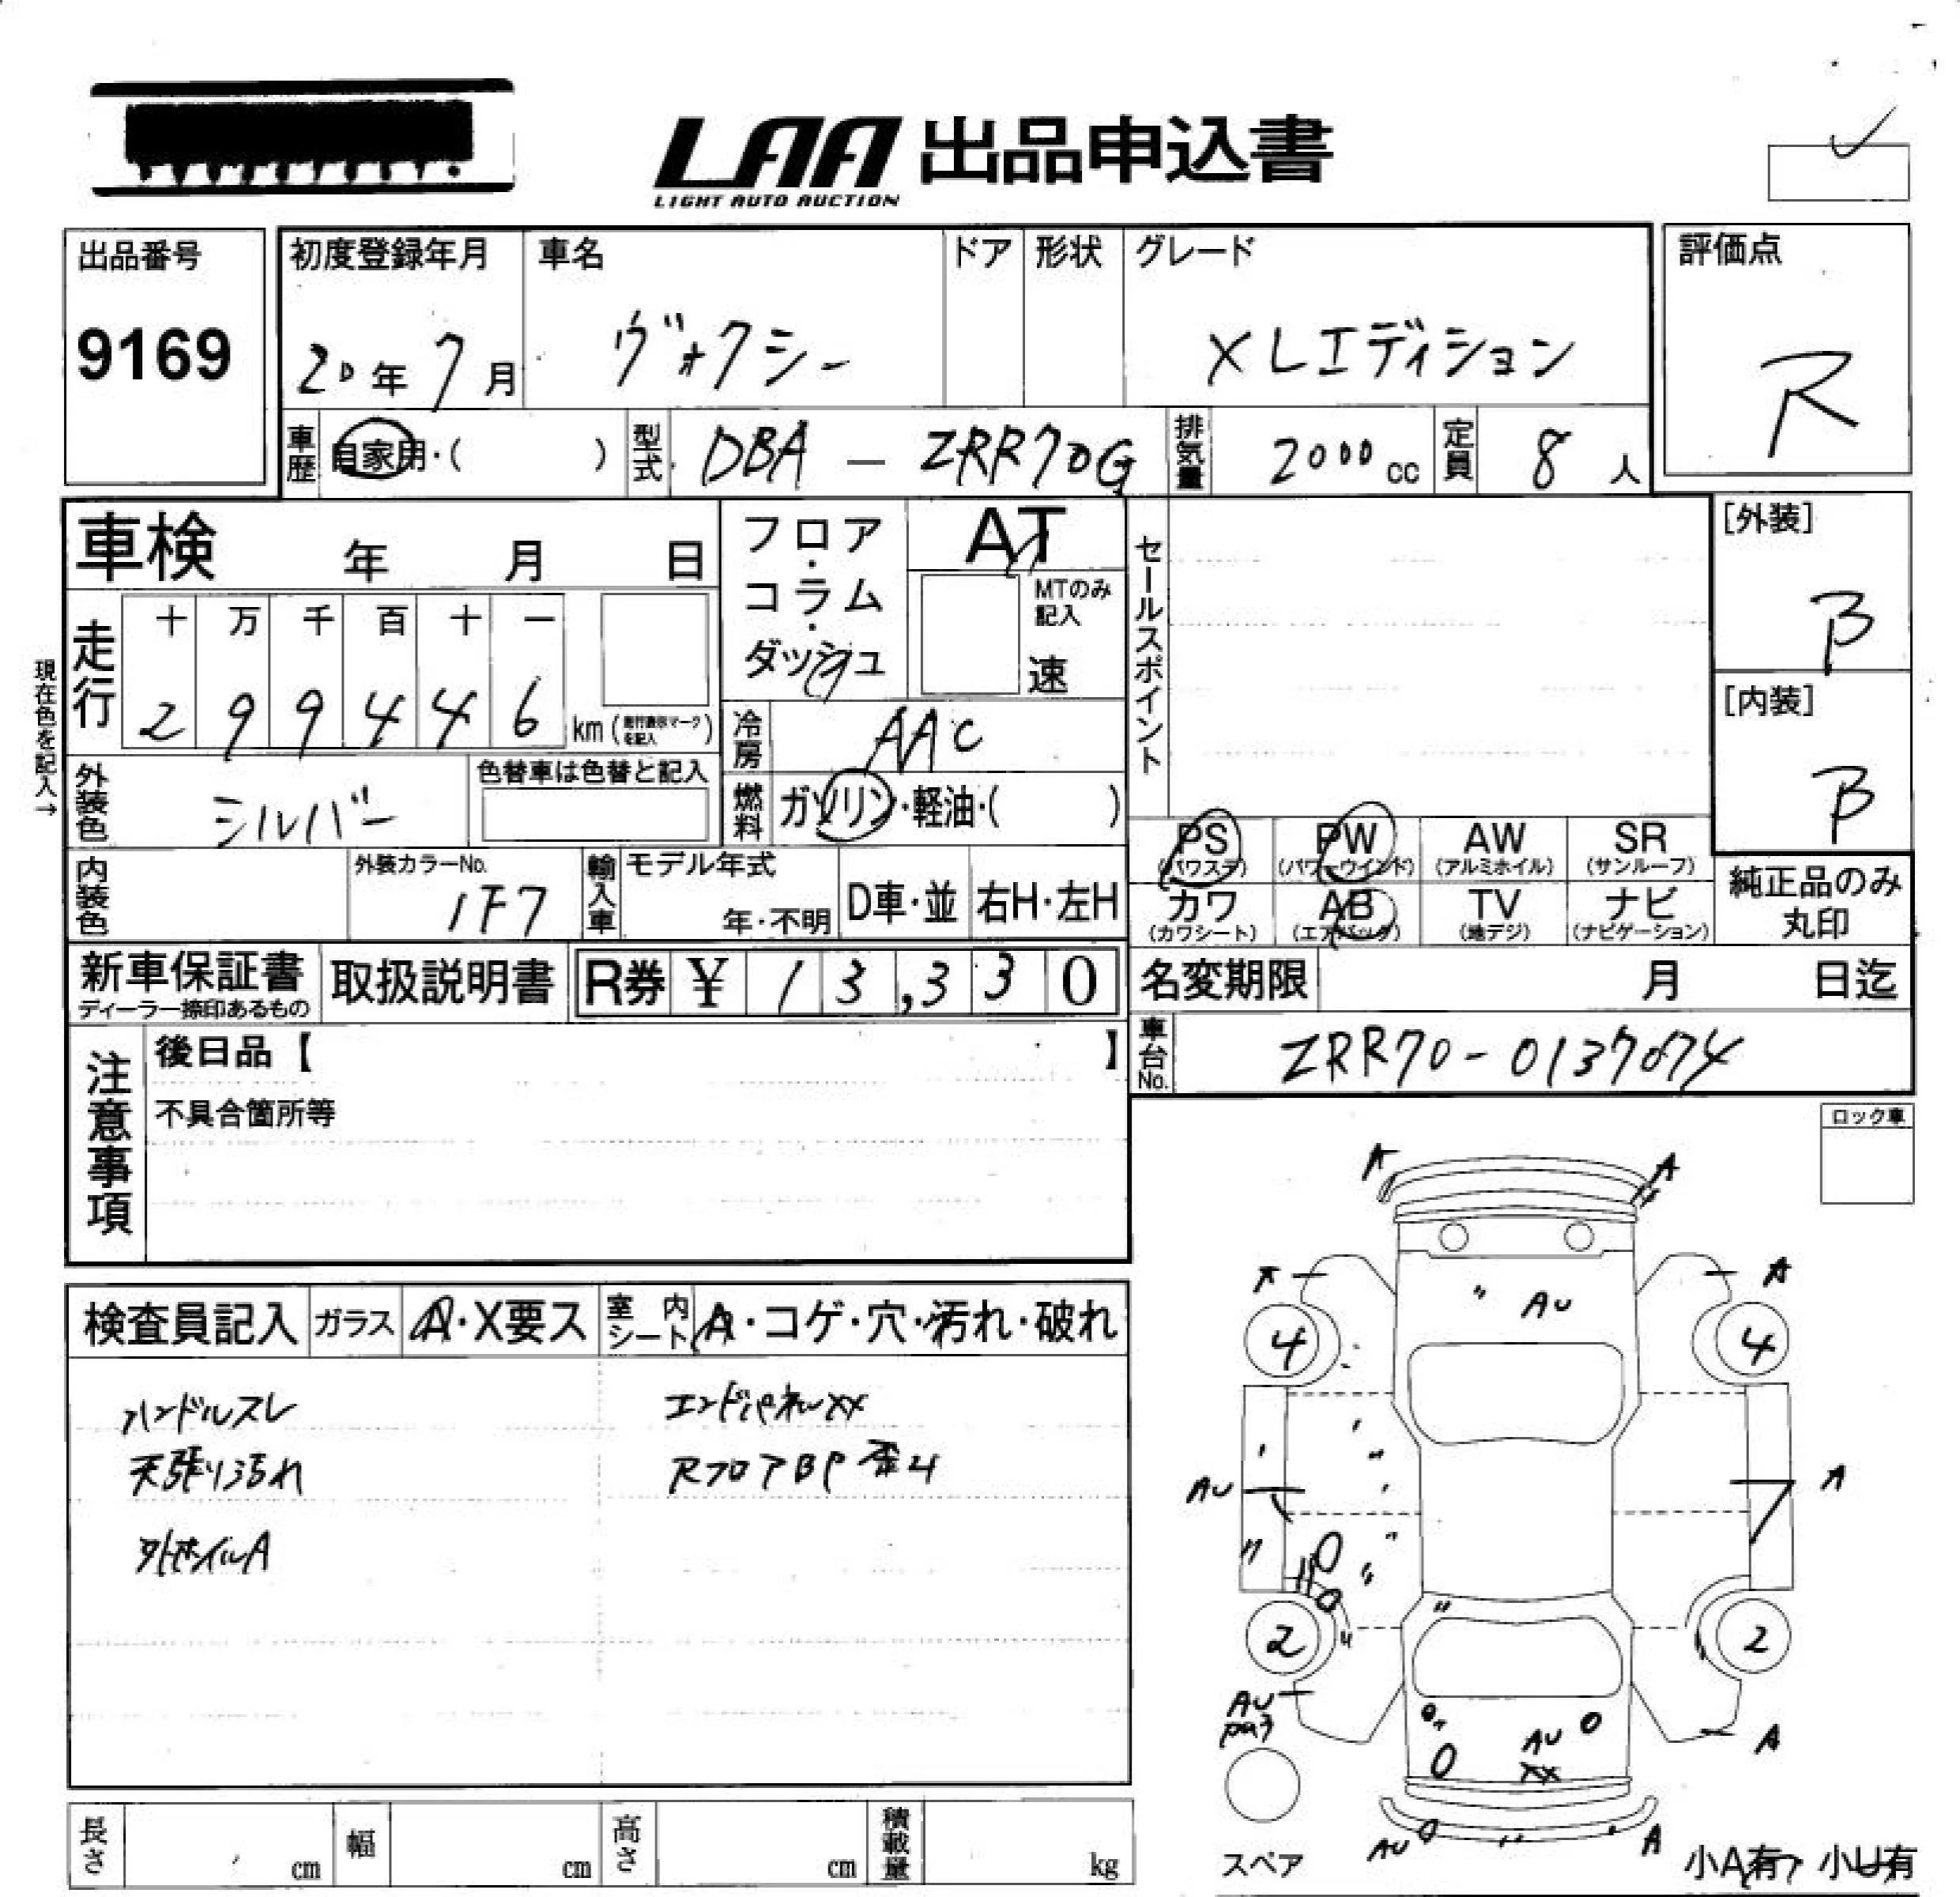 LAA 出品申込書
LIGHT AUTO AUCTION
出品番号
9169
初度登録年月
20年7月
車名
ヴォクシー
ドア
形状
グレード
XLエディション
評価点
R
車歴
自家用・( )
型式
DBA - ZRR70G
排気量
2000cc
定員
8人
車検 年 月 日
フロア・コラム・ダッシュ
AT
MTのみ記入
速
セールスポイント
[外装]
B
[内装]
B
現在色を記入→
走行
十 万 千 百 十 一
2 9 9 4 4 6 km (走行表示マークを記入)
冷房
AAC
外装色
シルバー
色替車は色替と記入
燃料
ガソリン・軽油・( )
PS (パワステ)
PW (パワーウインド)
AW (アルミホイル)
SR (サンルーフ)
カワ (カワシート)
AB (エアバック)
TV (地デジ)
ナビ (ナビゲーション)
純正品のみ丸印
内装色
外装カラーNo.
1F7
輸入車
モデル年式
年・不明
D車・並
右H・左H
新車保証書
ディーラー捺印あるもの
取扱説明書
R券 ¥ 13,330
名変期限 月 日迄
車台No.
ZRR70-0137074
注意事項
後日品【 】
不具合箇所等
ロック車
検査員記入
ガラス
A・X要ス
室内シート
A・コゲ・穴・汚れ・破れ
ハンドルスレ
エンドパネルXX
天張り汚れ
RフロアBP歪み
ホイルA
A A
A A
〃 AU
4 4
AU A
〃
〃
2 2
AU
A
AU
XX
AU A
スペア
小A有・小U有
長さ cm
幅 cm
高さ cm
積載量 kg